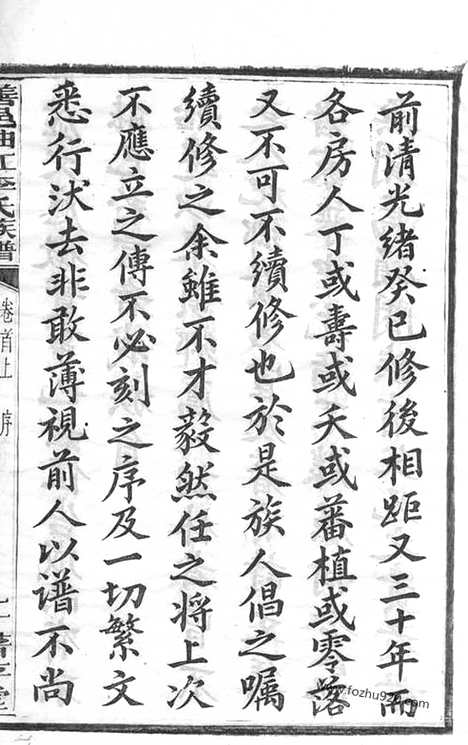 前清光緒癸巳修後相距又三十年而
各房人丁或壽或夭或蕃植或零落
又不可不續修也於是族人倡之囑
續修之余雖不才毅然任之將上次
不應立之傳不必刻之序及一切繁文
悉行汰去非敢薄視前人以譜不尚
善邑油江李氏族譜
卷首上 序
www.fozhu920.com